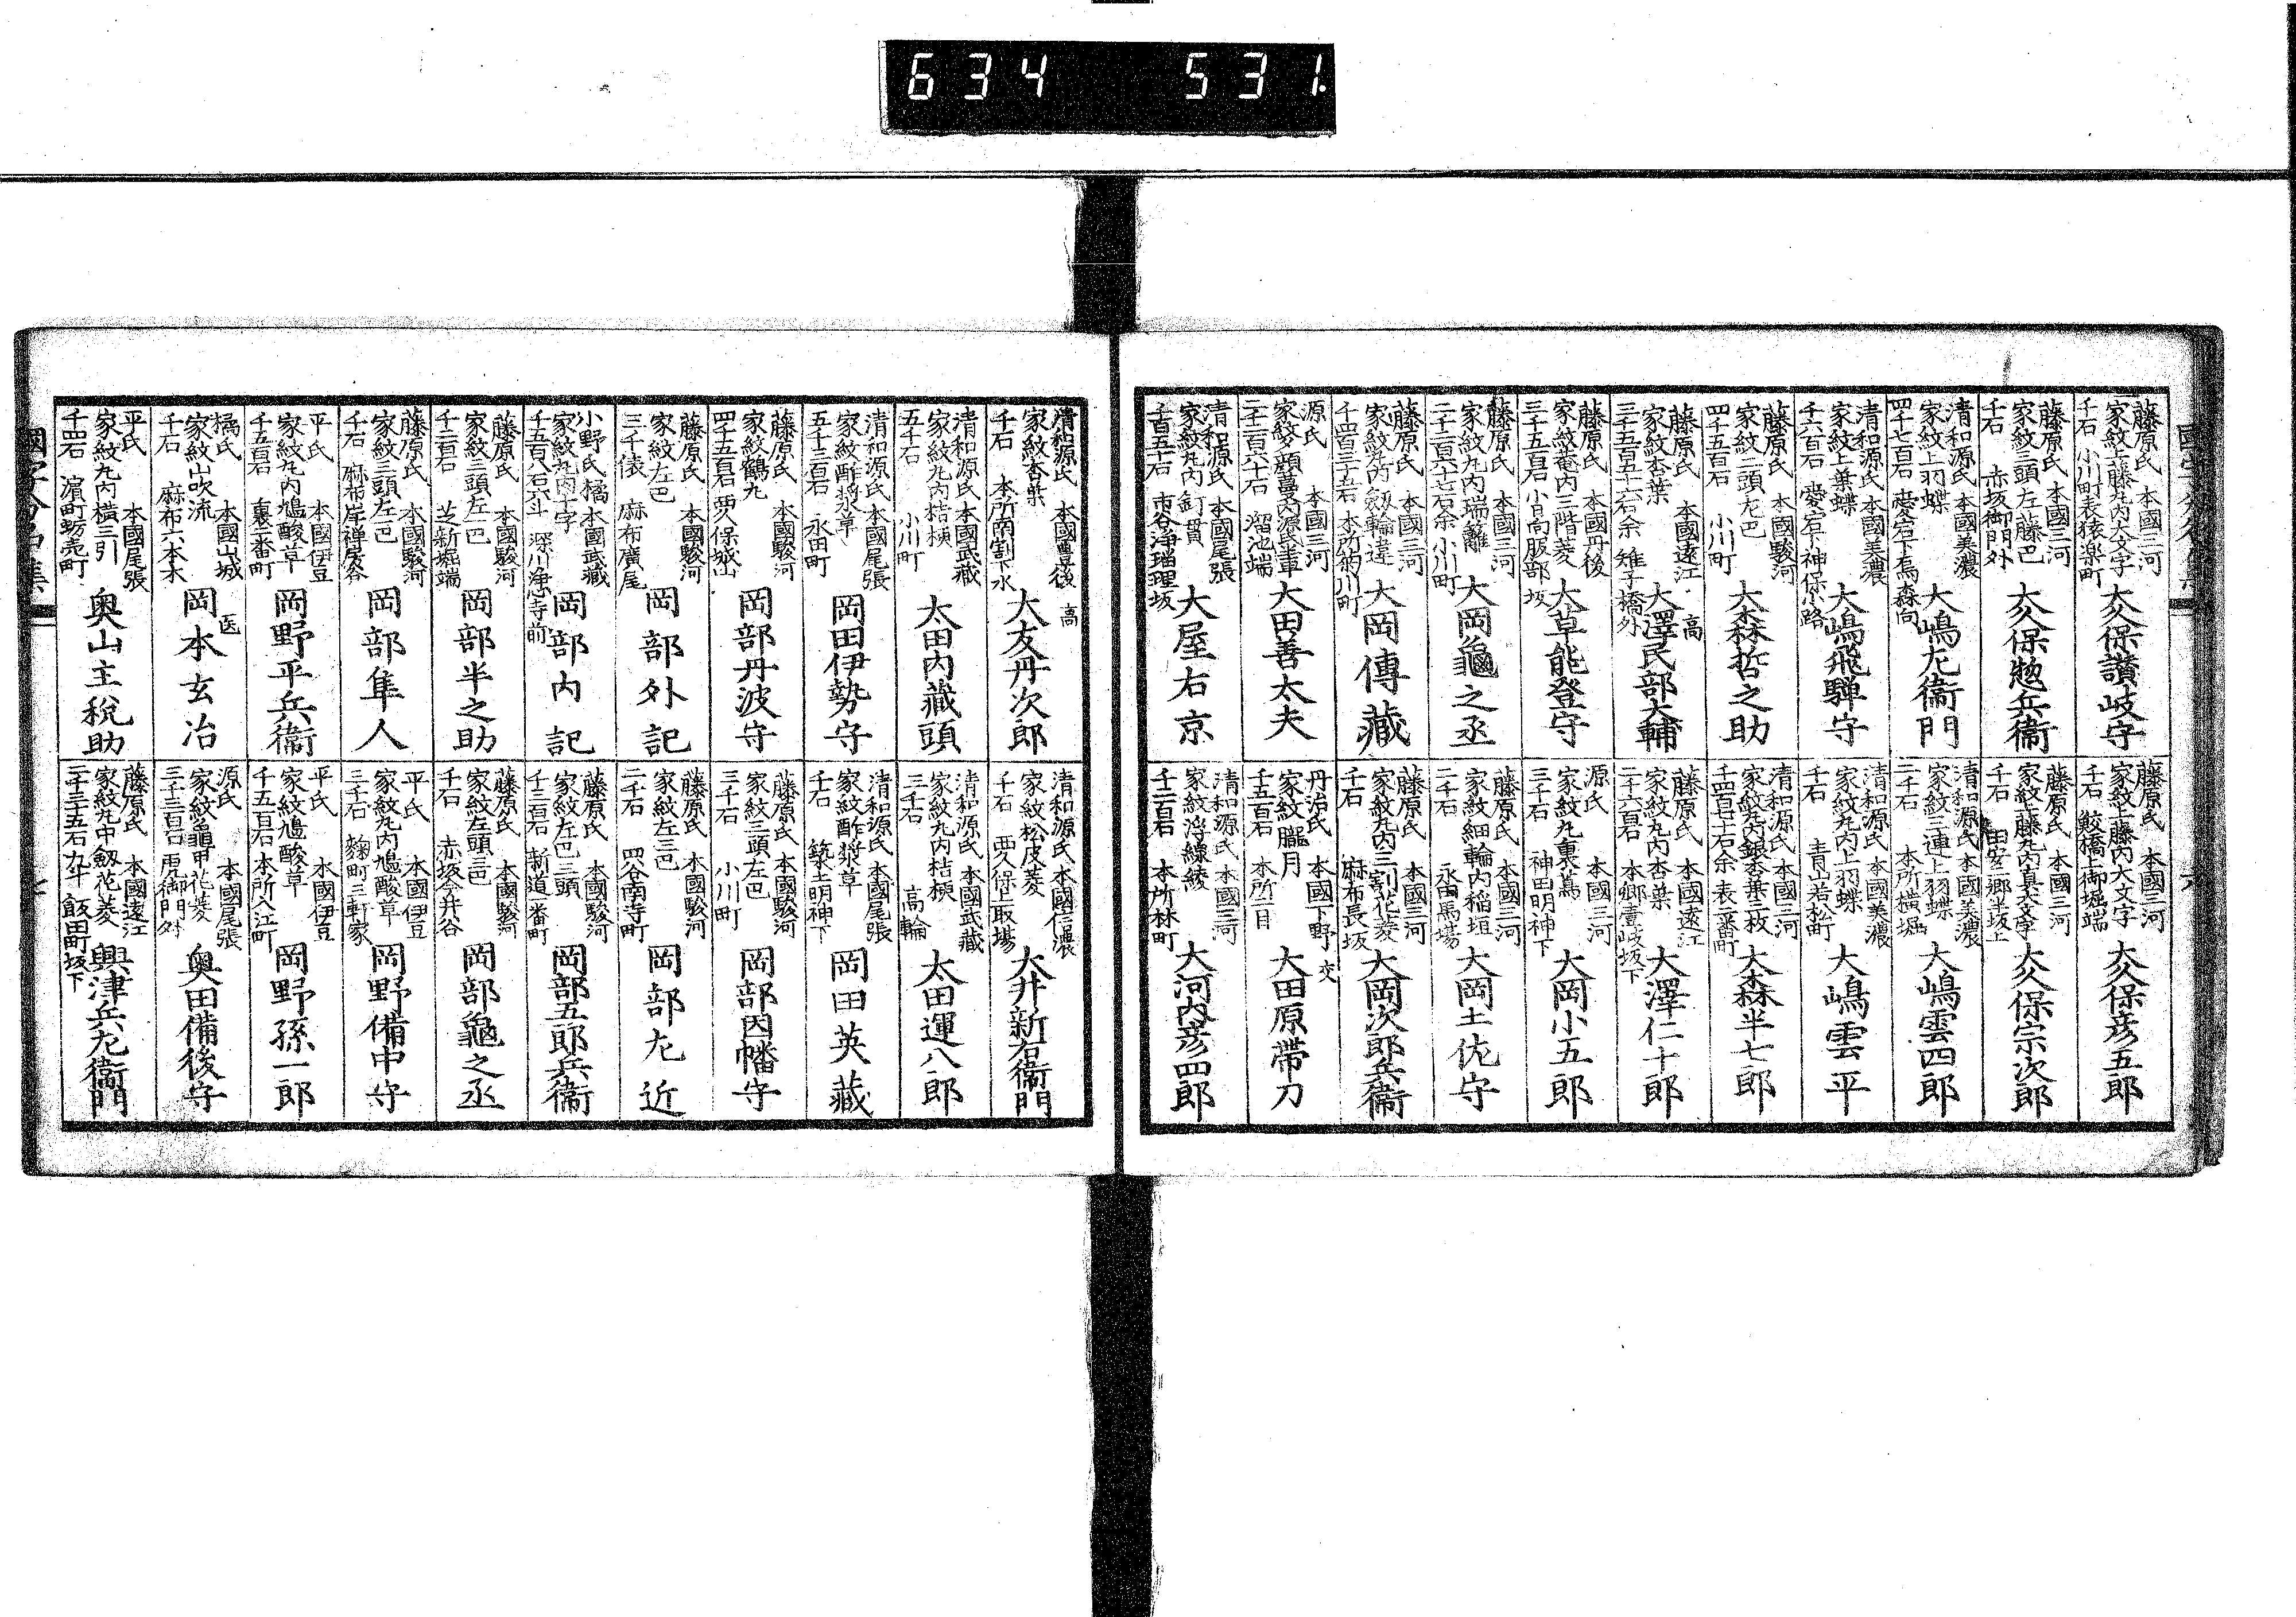 634 531.
藤原氏 本國三河
家紋上藤丸内大文字
千石 小川町表猿楽町
大久保讃岐守
藤原氏 本國三河
家紋三頭左藤巴
千石 赤坂御門外
大久保惣兵衞
清和源氏 本國美濃
家紋上羽蝶
四千七百石 愛宕下烏森向
大嶋左衞門
清和源氏 本國美濃
家紋上羽蝶
千六百石 愛宕下神保小路
大嶋飛騨守
藤原氏 本國駿河
家紋二頭左巴
四千五百石 小川町
大森哲之助
藤原氏 本國遠江
家紋杏葉
三千五百五十六石余 雉子橋外
高
大澤民部大輔
藤原氏 本國丹後
家紋菴内三階菱
三千五百石 小日向服部坂
大草能登守
藤原氏 本國三河
家紋丸内瑞籬
二千二百六十七石余 小川町
大岡龜之丞
藤原氏 本國三河
家紋丸内剱輪違
千四百三十五石 本所菊川町
大岡傳藏
源氏 本國三河
二千二百六十石 溜池端
大田善太夫
清和源氏 本國尾張
家紋丸内釘貫
千百五十石 市谷浄瑠理坂
大屋右京
藤原氏 本國三河
家紋上藤内大文字
千石 鮫橋上御堀端
大久保彦五郎
藤原氏 本國三河
家紋上藤丸内真大文字
千石 田安二郷半坂上
大久保宗次郎
清和源氏 本國美濃
家紋三連上羽蝶
二千石 本所横堀
大嶋雲四郎
清和源氏 本國美濃
家紋丸内上羽蝶
千石 青山若松町
大嶋雲平
清和源氏 本國三河
家紋丸内銀杏葉三枚
千四百七十石余 表二番町
大森半七郎
藤原氏 本國遠江
家紋丸内杏葉
二千六百石 本郷壹岐坂下
大澤仁十郎
源氏 本國三河
家紋丸裏蔦
三千石 神田明神下
大岡小五郎
藤原氏 本國三河
家紋細輪内稲垣
二千石 永田馬場
大岡土佐守
藤原氏 本國三河
家紋丸内三割花菱
千石 麻布長坂
大岡次郎兵衞
丹治氏 本國下野
家紋朧月
千五百石 本所二目
交
大田原帶刀
清和源氏 本國三河
家紋浮線綾
千二百石 本所林町
大河内彦四郎
清和源氏 本國豊後
家紋杏葉
千石 本所南割下水
高
大友丹次郎
清和源氏 本國武藏
家紋丸内桔梗
五千石 小川町
太田内藏頭
清和源氏 本國尾張
家紋酢漿草
五千三百石 永田町
岡田伊勢守
藤原氏 本國駿河
家紋鶴丸
四千五百石 西久保城山
岡部丹波守
藤原氏 本國駿河
家紋左巴
三千俵 麻布廣尾
岡部外記
小野氏橘 本國武藏
家紋丸内十字
千五百八石六斗 深川浄心寺前
岡部内記
藤原氏 本國駿河
家紋三頭左巴
千二百石 芝新堀端
岡部半之助
藤原氏 本國駿河
家紋三頭左巴
千石 麻布岸禅坊谷
岡部隼人
平氏 本國伊豆
家紋丸内鳩酸草
千五百石 裏二番町
岡野平兵衞
橘氏 本國山城
家紋山吹流
千石 麻布六本木
医
岡本玄冶
平氏 本國尾張
家紋丸内横三引
千四百石 濱町蛎壳町
奥山主税助
清和源氏 本國信濃
家紋松皮菱
千石 西久保上取場
大井新右衞門
清和源氏 本國武藏
家紋丸内桔梗
三千石 高輪
太田運八郎
清和源氏 本國尾張
家紋酢漿草
千石 築土明神下
岡田英藏
藤原氏 本國駿河
家紋三頭左巴
三千石 小川町
岡部因幡守
藤原氏 本國駿河
家紋左三巴
二千石 四谷南寺町
岡部左近
藤原氏 本國駿河
家紋左巴三頭
千三百石 新道一番町
岡部五郎兵衞
藤原氏 本國駿河
家紋左頭三巴
千石 赤坂今井谷
岡部龜之丞
平氏 本國伊豆
家紋丸内鳩酸草
三千石 麹町三軒家
岡野備中守
平氏 本國伊豆
家紋鳩酸草
千五百石 本所入江町
岡野孫一郎
源氏 本國尾張
家紋龜甲花菱
三千三百石 西久保御門外
奥田備後守
藤原氏 本國遠江
家紋丸中剱花菱
二千三十五石九斗 飯田町坂下
興津兵左衞門
國字分名集
六
七